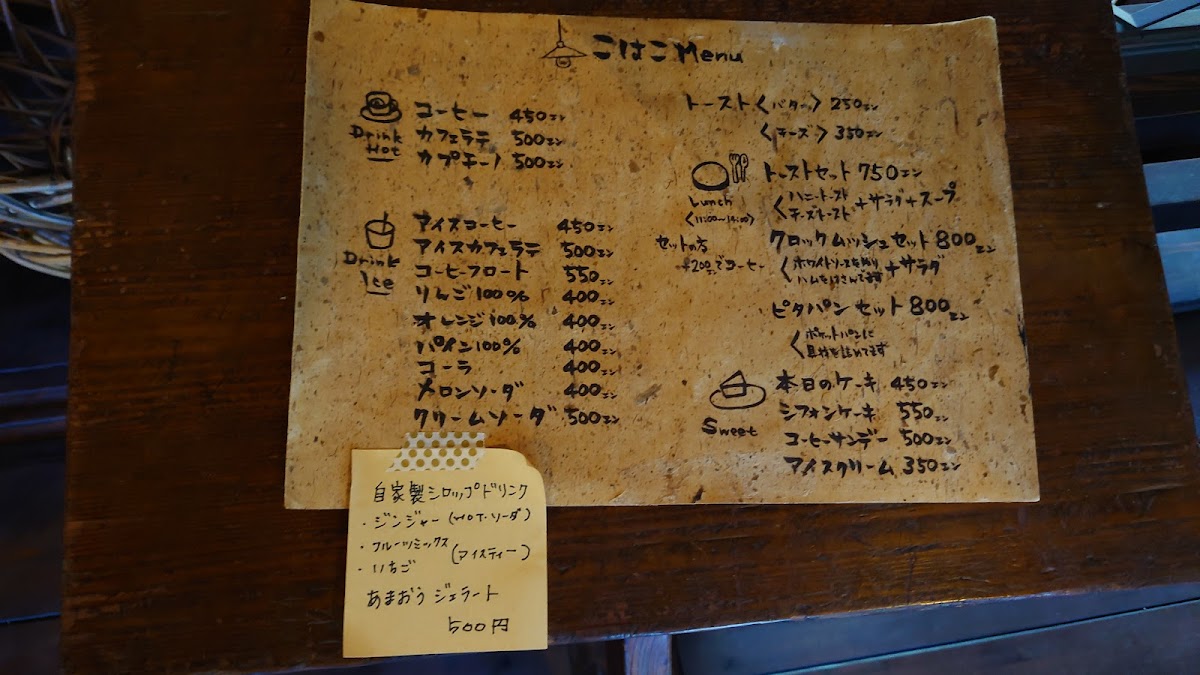 こはこ Menu
Drink Hot
コーヒー 450エン
カフェラテ 500エン
カプチーノ 500エン
Drink Ice
アイスコーヒー 450エン
アイスカフェラテ 500エン
コーヒーフロート 550エン
りんご100% 400エン
オレンジ100% 400エン
パイン100% 400エン
コーラ 400エン
メロンソーダ 400エン
クリームソーダ 500エン
トースト〈バター〉 250エン
〈チーズ〉 350エン
Lunch
〈11:00〜14:00〉
セットの方
+200エンでコーヒー
トーストセット 750エン
〈ハニートースト
チーズトースト +サラダ+スープ
クロックムッシュセット 800エン
〈ホワイトソースをぬり
ハムをはさんでます +サラダ
ピタパンセット 800エン
〈ポケットパンに
具材を詰めてます
Sweet
本日のケーキ 450エン
シフォンケーキ 550エン
コーヒーサンデー 500エン
アイスクリーム 350エン
自家製シロップドリンク
・ジンジャー(HOT・ソーダ)
・フルーツミックス
(アイスティー)
・いちご
あまおうジェラート
500円